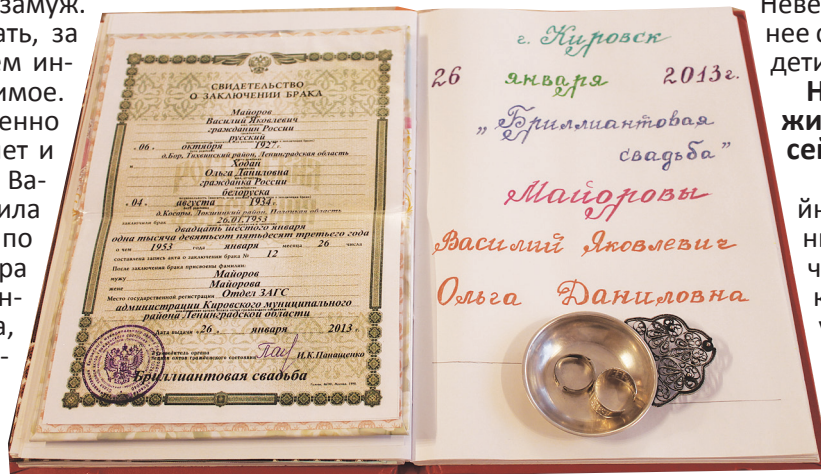 замуж.
ать, за
ем ин-
имое.
енно
лет и
Ва-
ила
по
ра
н-
а,
-
СВИДЕТЕЛЬСТВО
О ЗАКЛЮЧЕНИИ БРАКА
Майоров
Василий Яковлевич
гражданин России
русский
"06" октября 1927 г.
д.Бор, Тихвинский район, Ленинградская область
и Ходан
Ольга Даниловна
гражданка России
белоруска
"04" августа 1934 г.
д.Косары, район, область
заключили брак 26.01.1953
двадцать шестого января
одна тысяча девятьсот пятьдесят третьего года
о чем 1953 года января месяца 26 числа
составлена запись акта о заключении брака № 12
После заключения брака присвоены фамилии:
мужу Майоров
жене Майорова
Место государственной регистрации Отдел ЗАГС
администрации Кировского муниципального
района Ленинградской области
Дата выдачи "26" января 2013 г.
Руководитель органа
записи актов гражданского состояния И.К.Панащенко
Бриллиантовая свадьба
г. Кировск
26 января 2013г.
„Бриллиантовая
свадьба"
Майоровы
Василий Яковлевич
Ольга Даниловна
Неве
нее с
дети
Н
жи
сей
йн
ни
ч
к
у